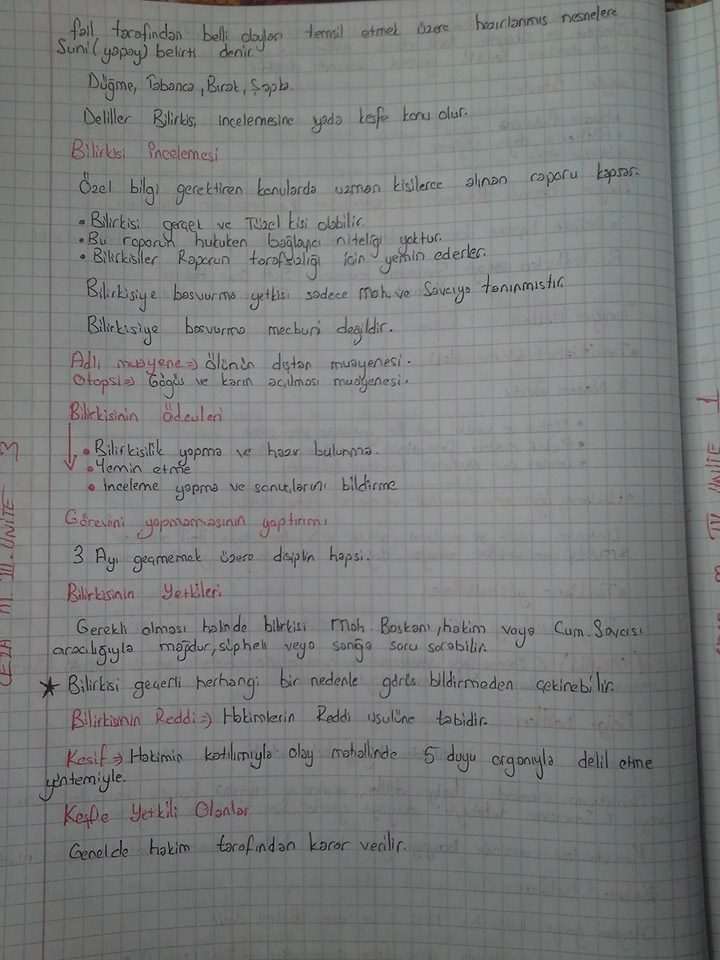 fail tarafından belli olayları temsil etmek üzere hazırlanmış nesnelere
Suni (yapay) belirti denir.
Düğme, Tabanca, Bıçak, Şapka.
Deliller Bilirkişi incelemesine yada keşfe konu olur.
Bilirkişi İncelemesi
Özel bilgi gerektiren konularda uzman kişilerce alınan raporu kapsar.
• Bilirkişi gerçek ve Tüzel kişi olabilir.
• Bu raporun hukuken bağlayıcı niteliği yoktur.
• Bilirkişiler Raporun tarafsızlığı için yemin ederler.
Bilirkişiye başvurma yetkisi sadece mah. ve Savcıya tanınmıştır.
Bilirkişiye başvurma mecburi değildir.
Adli muayene => Ölünün dıştan muayenesi.
Otopsi => Göğüs ve karın açılması muayenesi.
Bilirkişinin Ödevleri
• Bilirkişilik yapma ve hazır bulunma.
• Yemin etme
• İnceleme yapma ve sonuçlarını bildirme
Görevini yapmamasının yaptırımı
3 Ayı geçmemek üzere disiplin hapsi.
Bilirkişinin Yetkileri
Gerekli olması halinde bilirkişi Mah. Başkanı, hakim veya Cum. Savcısı
aracılığıyla mağdur, şüpheli veya sanığa soru sorabilir.
★ Bilirkişi geçerli herhangi bir nedenle görüş bildirmeden çekinebilir.
Bilirkişinin Reddi => Hakimlerin Reddi usulüne tabidir.
Keşif => Hakimin katılımıyla olay mahallinde 5 duyu organıyla delil etme
yöntemiyle.
Keşfe Yetkili Olanlar
Genelde hakim tarafından karar verilir.
III. ÜNİTE 3
IV ÜNİTE 1